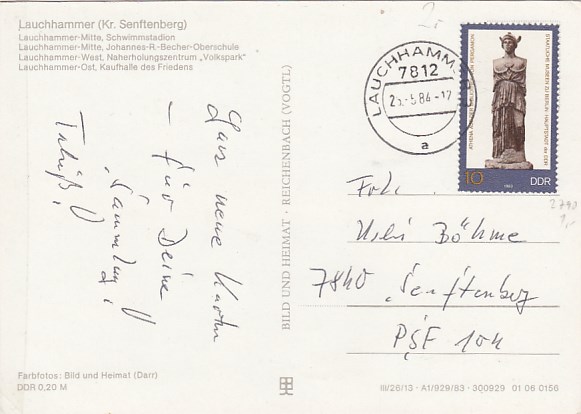 Lauchhammer (Kr. Senftenberg)
Lauchhammer-Mitte, Schwimmstadion
Lauchhammer-Mitte, Johannes-R.-Becher-Oberschule
Lauchhammer-West, Naherholungszentrum „Volkspark"
Lauchhammer-Ost, Kaufhalle des Friedens
neue Karten
– für Deine
Sammlung!
BILD UND HEIMAT · REICHENBACH (VOGTL)
LAUCHHAMMER
7812
5.84-12
a
STAATLICHE MUSEEN ZU BERLIN · HAUPTSTADT der DDR
10
1983
DDR
Böhme
7840 Senftenberg
PSF 104
Farbfotos: Bild und Heimat (Darr)
DDR 0,20 M
III/26/13 · A1/929/83 · 300929 01 06 0156